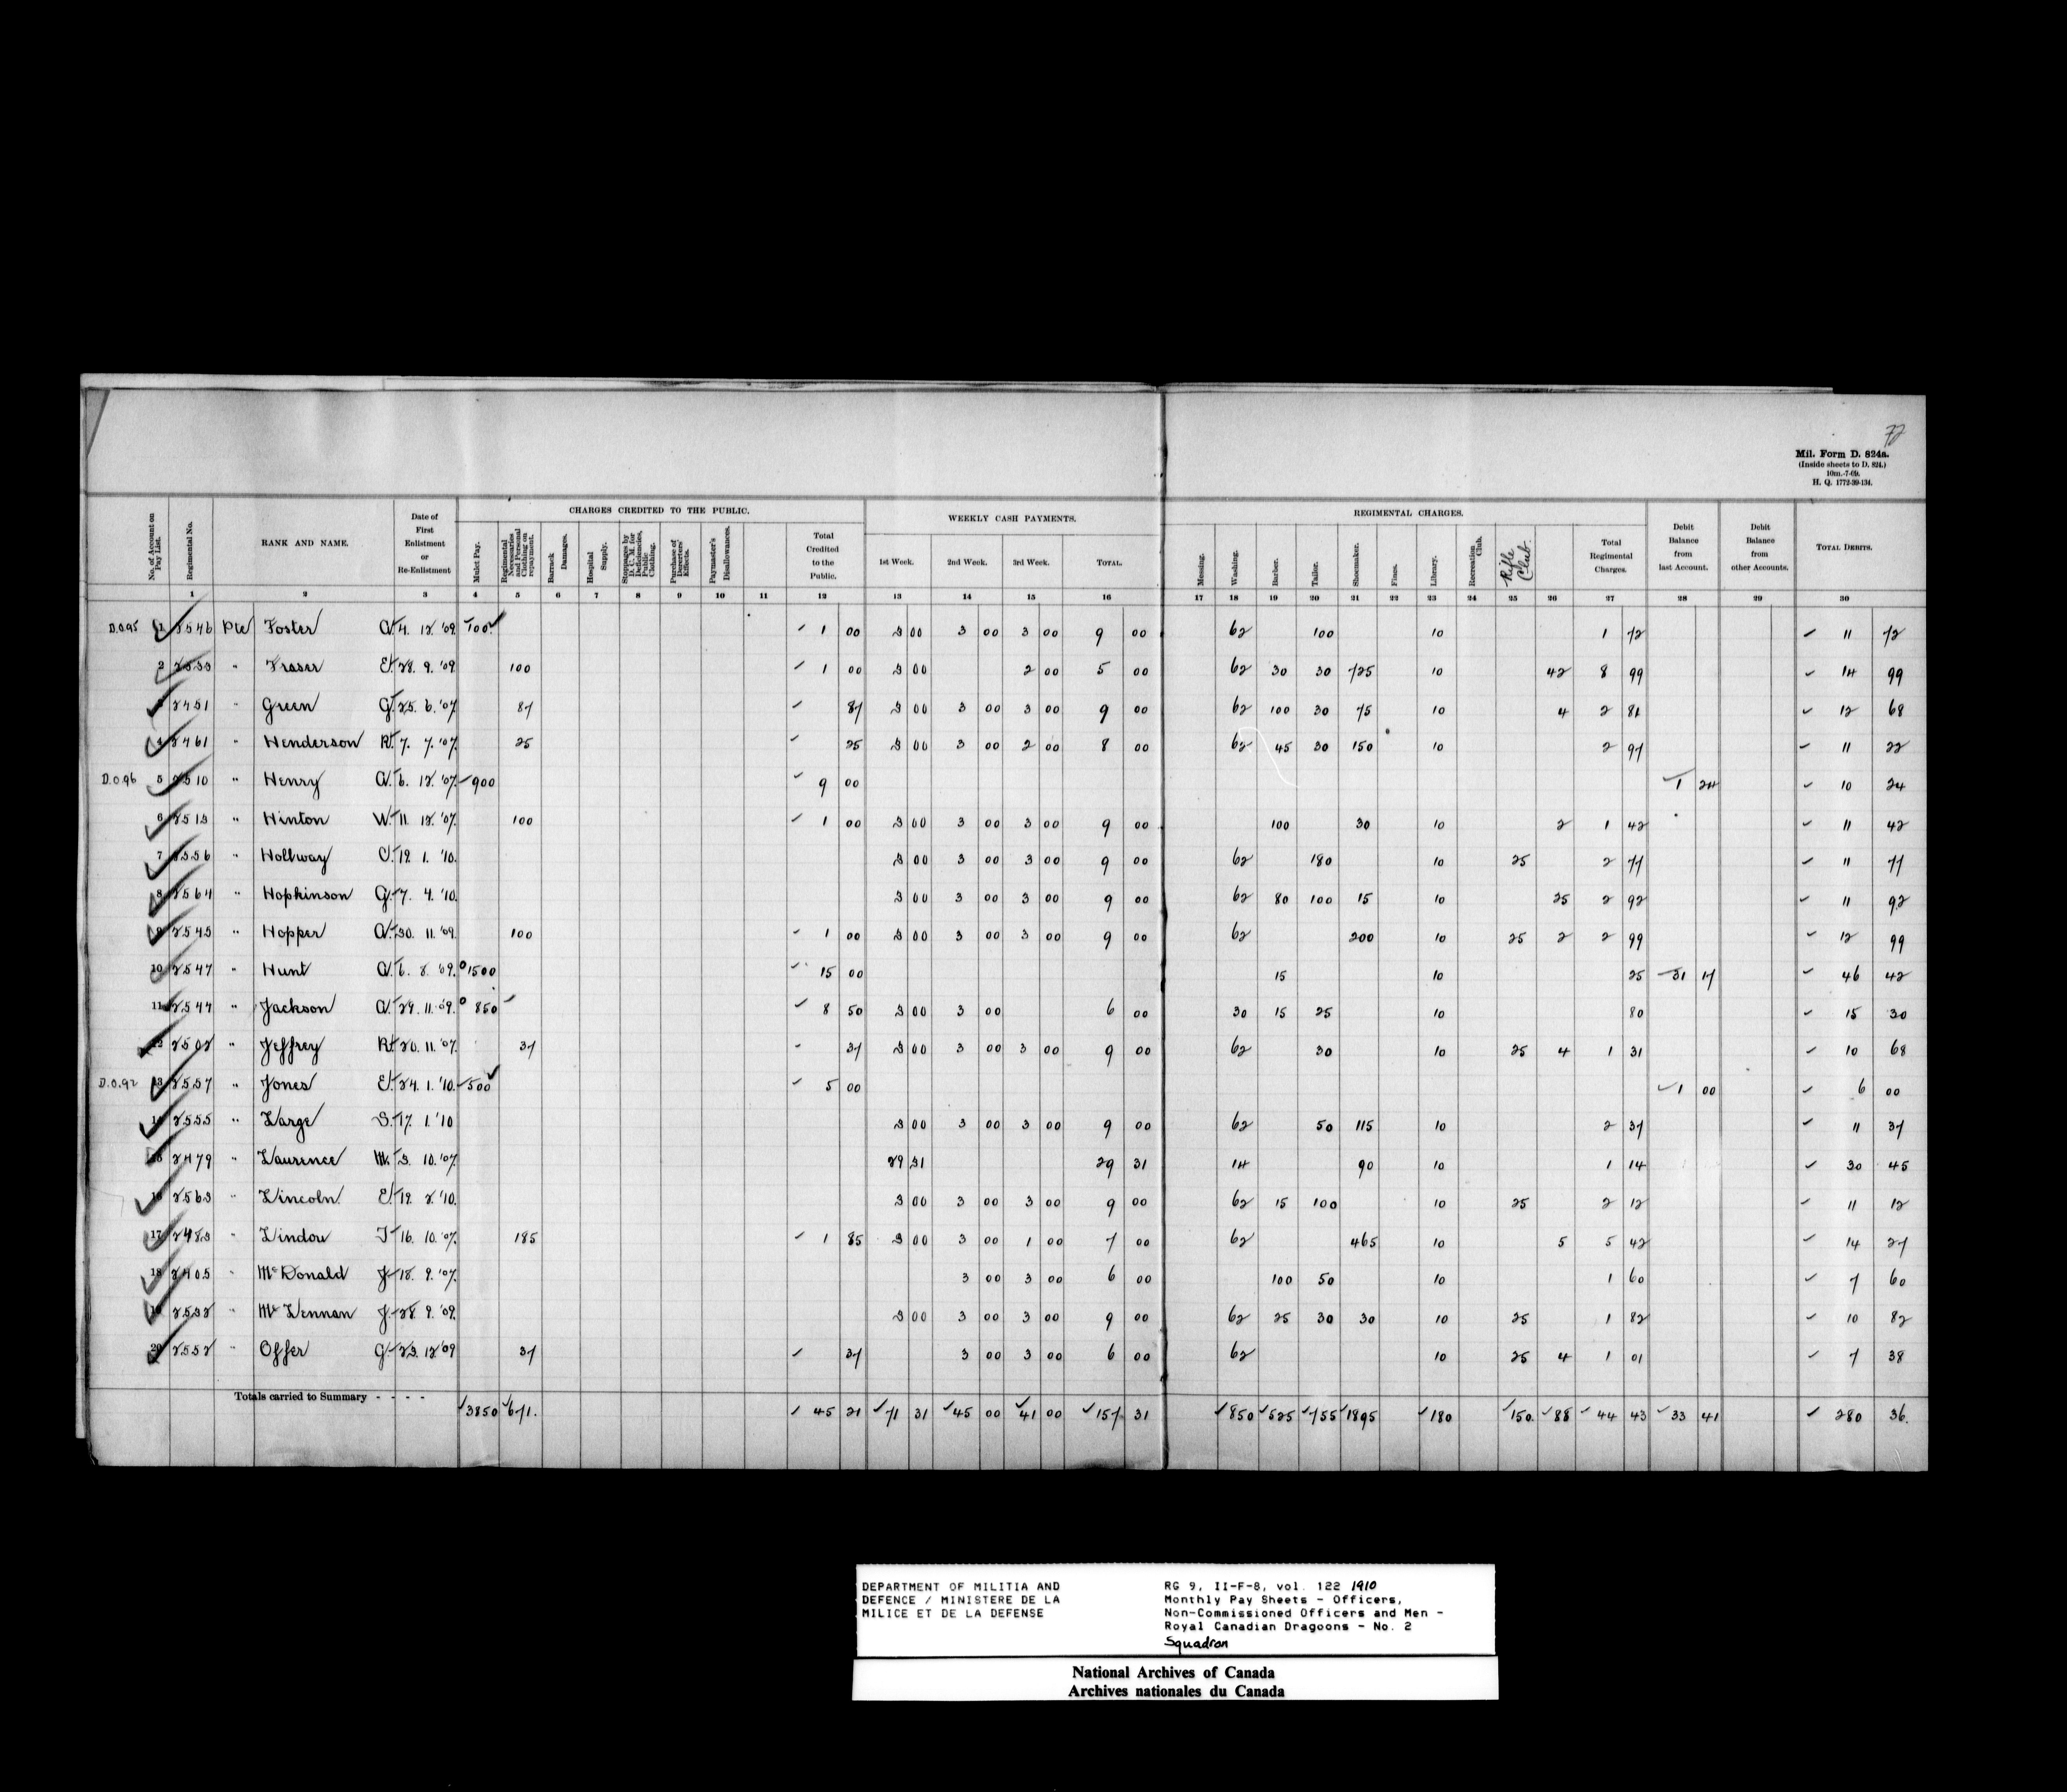 77
Mil. Form D. 824a.
(Inside sheets to D. 824.)
10m.-7-09.
H. Q. 1772-39-134.
No. of Account on Pay List. | Regimental No. | RANK AND NAME. | Date of First Enlistment or Re-Enlistment | CHARGES CREDITED TO THE PUBLIC. | WEEKLY CASH PAYMENTS. | REGIMENTAL CHARGES. | Debit Balance from last Account. | Debit Balance from other Accounts. | TOTAL DEBITS.
Mulct Pay. | Regimental Necessaries and Personal Clothing on repayment. | Barrack Damages. | Hospital Supply. | Stoppages by D. C. M. for Deficiencies, Public Clothing. | Purchase of Deserters' Effects. | Paymaster's Disallowances. | Total Credited to the Public. | 1st Week. | 2nd Week. | 3rd Week. | TOTAL. | Messing. | Washing. | Barber. | Tailor. | Shoemaker. | Fines. | Library. | Recreation Club. | Rifle Club. | Total Regimental Charges.
1 2 3 4 5 6 7 8 9 10 11 12 13 14 15 16 17 18 19 20 21 22 23 24 25 26 27 28 29 30
D.O.95 1 2546 Pte Foster A. 4. 12. '09. 100 1 00 3 00 3 00 3 00 9 00 62 100 10 1 72 11 72
2 2533 " Fraser E. 28. 9. '09. 100 1 00 3 00 2 00 5 00 62 30 30 725 10 42 8 99 14 99
3 2451 " Green G. 25. 6. '07. 87 87 3 00 3 00 3 00 9 00 62 100 30 75 10 4 2 81 12 68
4 2461 " Henderson R. 7. 7. '07. 25 25 3 00 3 00 2 00 8 00 62 45 30 150 10 2 97 11 22
D.O.96 5 2510 " Henry A. 6. 12. '07. 900 9 00 1 24 10 24
6 2513 " Hinton W. 11. 12. '07. 100 1 00 3 00 3 00 3 00 9 00 100 30 10 2 1 42 11 42
7 2556 " Hollway C. 19. 1. '10. 3 00 3 00 3 00 9 00 62 180 10 25 2 77 11 77
8 2564 " Hopkinson G. 7. 4. '10. 3 00 3 00 3 00 9 00 62 80 100 15 10 25 2 92 11 92
9 2545 " Hopper A. 30. 11. '09. 100 1 00 3 00 3 00 3 00 9 00 62 200 10 25 2 2 99 12 99
10 2547 " Hunt A. 6. 8. '09. 1500 15 00 15 10 25 31 17 46 42
11 2544 " Jackson A. 29. 11. '09. 850 8 50 3 00 3 00 6 00 30 15 25 10 80 15 30
12 2502 " Jeffrey R. 20. 11. '07. 37 37 3 00 3 00 3 00 9 00 62 30 10 25 4 1 31 10 68
D.O.92 13 2557 " Jones E. 24. 1. '10. 500 5 00 1 00 6 00
14 2555 " Large S. 17. 1. '10 3 00 3 00 3 00 9 00 62 50 115 10 2 37 11 37
15 2479 " Laurence M. 3. 10. '07. 29 31 29 31 14 90 10 1 14 30 45
16 2563 " Lincoln E. 19. 2. '10. 3 00 3 00 3 00 9 00 62 15 100 10 25 2 12 11 12
17 2483 " Lindow T. 16. 10. '07. 185 1 85 3 00 3 00 1 00 7 00 62 465 10 5 5 42 14 27
18 2405 " McDonald J. 18. 9. '07. 3 00 3 00 6 00 100 50 10 1 60 7 60
19 2532 " McLennan J. 28. 9. '09. 3 00 3 00 3 00 9 00 62 25 30 30 10 25 1 82 10 82
20 2552 " Offer G. 23. 12 '09 37 37 3 00 3 00 6 00 62 10 25 4 1 01 7 38
Totals carried to Summary - - - - 3850 671. 45 21 71 31 45 00 41 00 157 31 850 525 755 1895 180 150 88 44 43 33 41 280 36.
DEPARTMENT OF MILITIA AND
DEFENCE / MINISTERE DE LA
MILICE ET DE LA DEFENSE
RG 9, II-F-8, vol. 122 1910
Monthly Pay Sheets - Officers,
Non-Commissioned Officers and Men -
Royal Canadian Dragoons - No. 2
Squadron
National Archives of Canada
Archives nationales du Canada